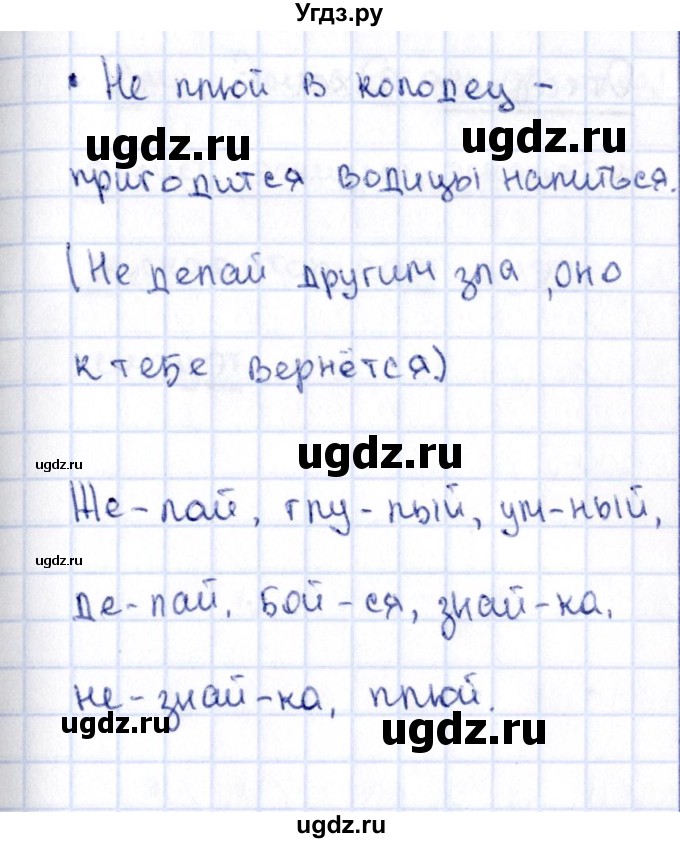 Угдз.ру
• Не плюй в колодец -
ugdz.ru ugdz.ru
пригодится водицы напиться.
(Не делай другим зла, оно
к тебе вернётся.)
ugdz.ru
ugdz.ru
Же-лай, глу-пый, ум-ный,
ugdz.ru
де-лай, бой-ся, знай-ка,
не-знай-ка, плюй.
ugdz.ru ugdz.ru
ugdz.ru